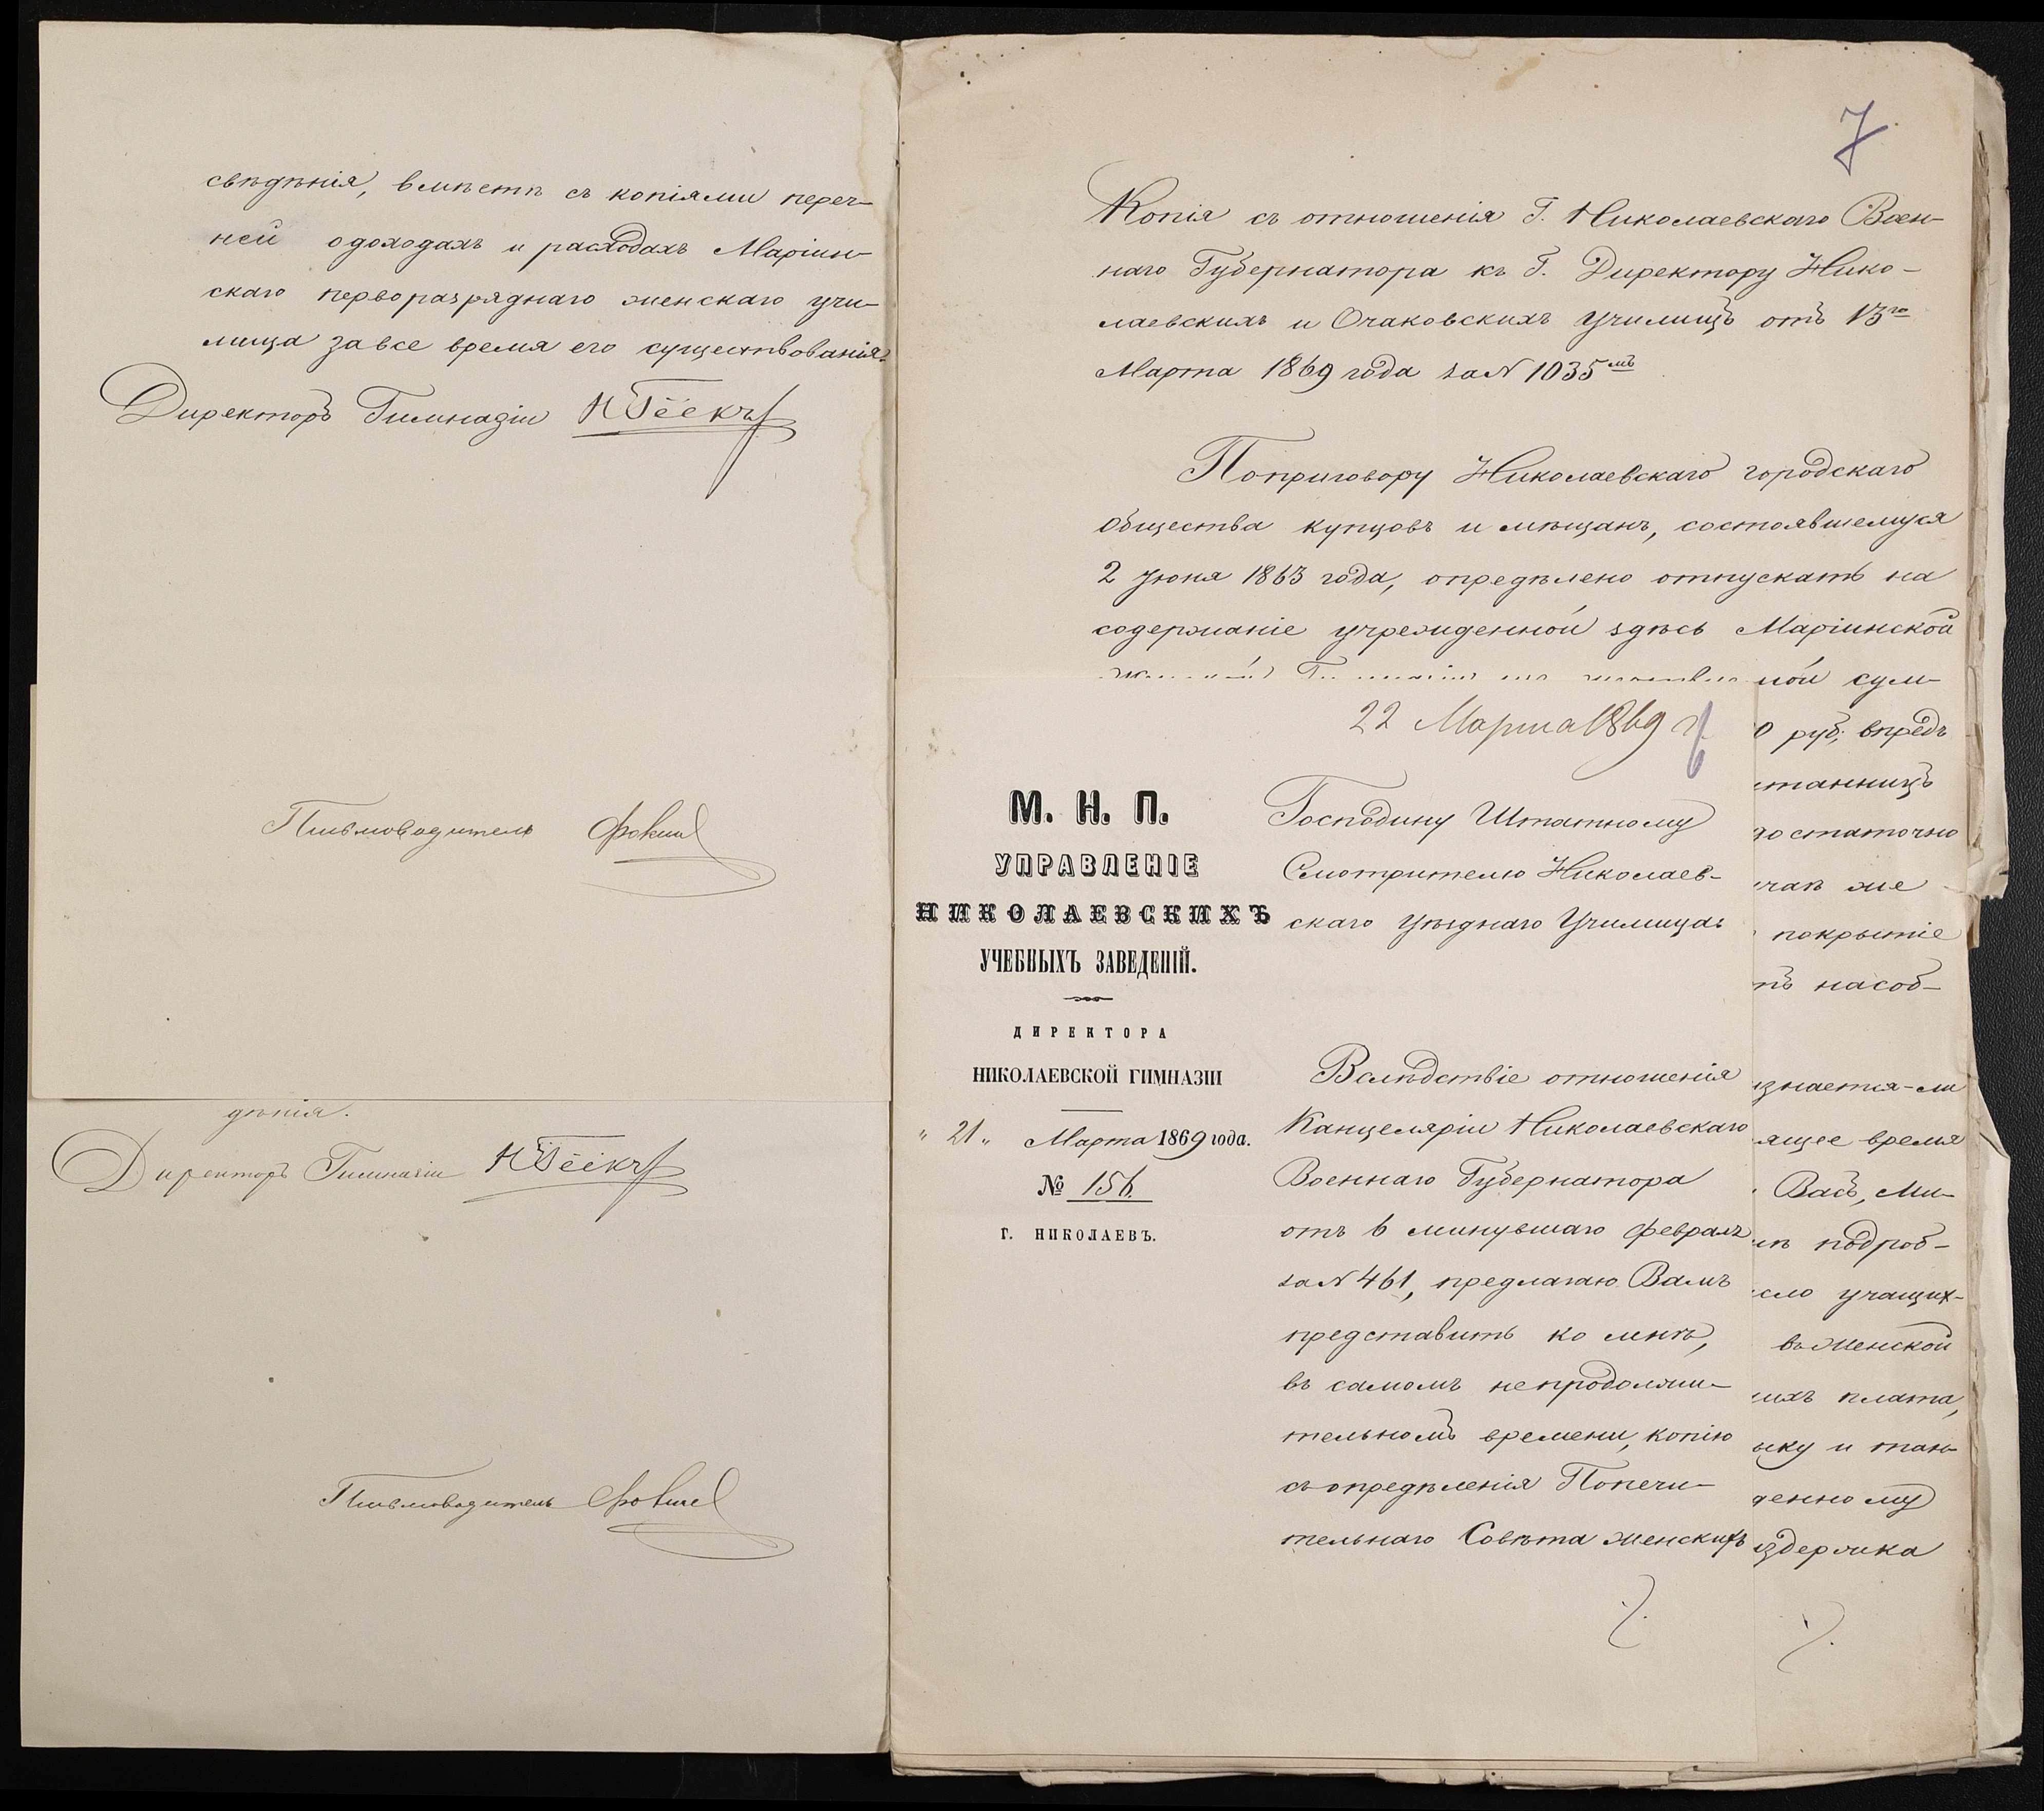 свѣдѣнія, вмѣстѣ съ копіями переч-
ней одоходахъ и расходахъ Маріин-
скаго перворазряднаго женскаго учи-
лища завсе время его существованія.
Директоръ Гимназіи Н Гёекъ
Письмоводитель Фокин
дѣнія.
Директоръ Гимназіи Н Гёекъ
Письмоводитель Фокин
7
Копія съ отношенія Г. Николаевскаго Воен-
наго Губернатора къ Г. Директору Нико-
лаевскихъ и Очаковскихъ Училищъ отъ 13го
Марта 1869 года за N 1035мъ
Поприговору Николаевскаго городскаго
общества купцовъ и мѣщанъ, состоявшемуся
2 Іюня 1863 года, опредѣлено отпускать на
содержаніе учрежденной здѣсь Маріинской
ной сум-
0 руб; впредь
станницъ
достаточно
чаѣ же
покрытіе
тъ насоб-
знается-ли
ящее время
Васъ, Ми-
мъ подроб-
сло учащих-
въ женской
ихъ плата,
ыку и тан-
денному
издержка
./.
22 Марта 1869 г.
М. Н. П.
УПРАВЛЕНІЕ
НИКОЛАЕВСКИХЪ
УЧЕБНЫХЪ ЗАВЕДЕНІЙ.
ДИРЕКТОРА
НИКОЛАЕВСКОЙ ГИМНАЗІИ
" 21 " Марта 1869 года.
№ 156.
Г. НИКОЛАЕВЪ.
Господину Штатному
Смотрителю Николаев-
скаго Уѣзднаго Училища.
Вслѣдствіе отношенія
Канцеляріи Николаевскаго
Военнаго Губернатора
отъ 6 минувшаго Февраля
за N 461, предлагаю Вамъ
представить ко мнѣ,
въ самомъ непродолжи-
тельномъ времени, копію
съ опредѣленія Попечи-
тельнаго Совѣта женскихъ
./.